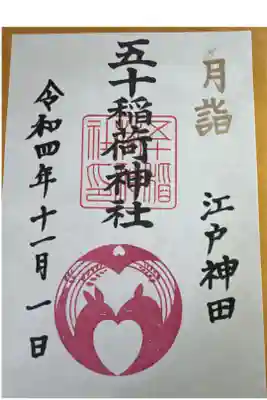 月詣
江戸神田
五十稲荷神社
令和四年十一月一日